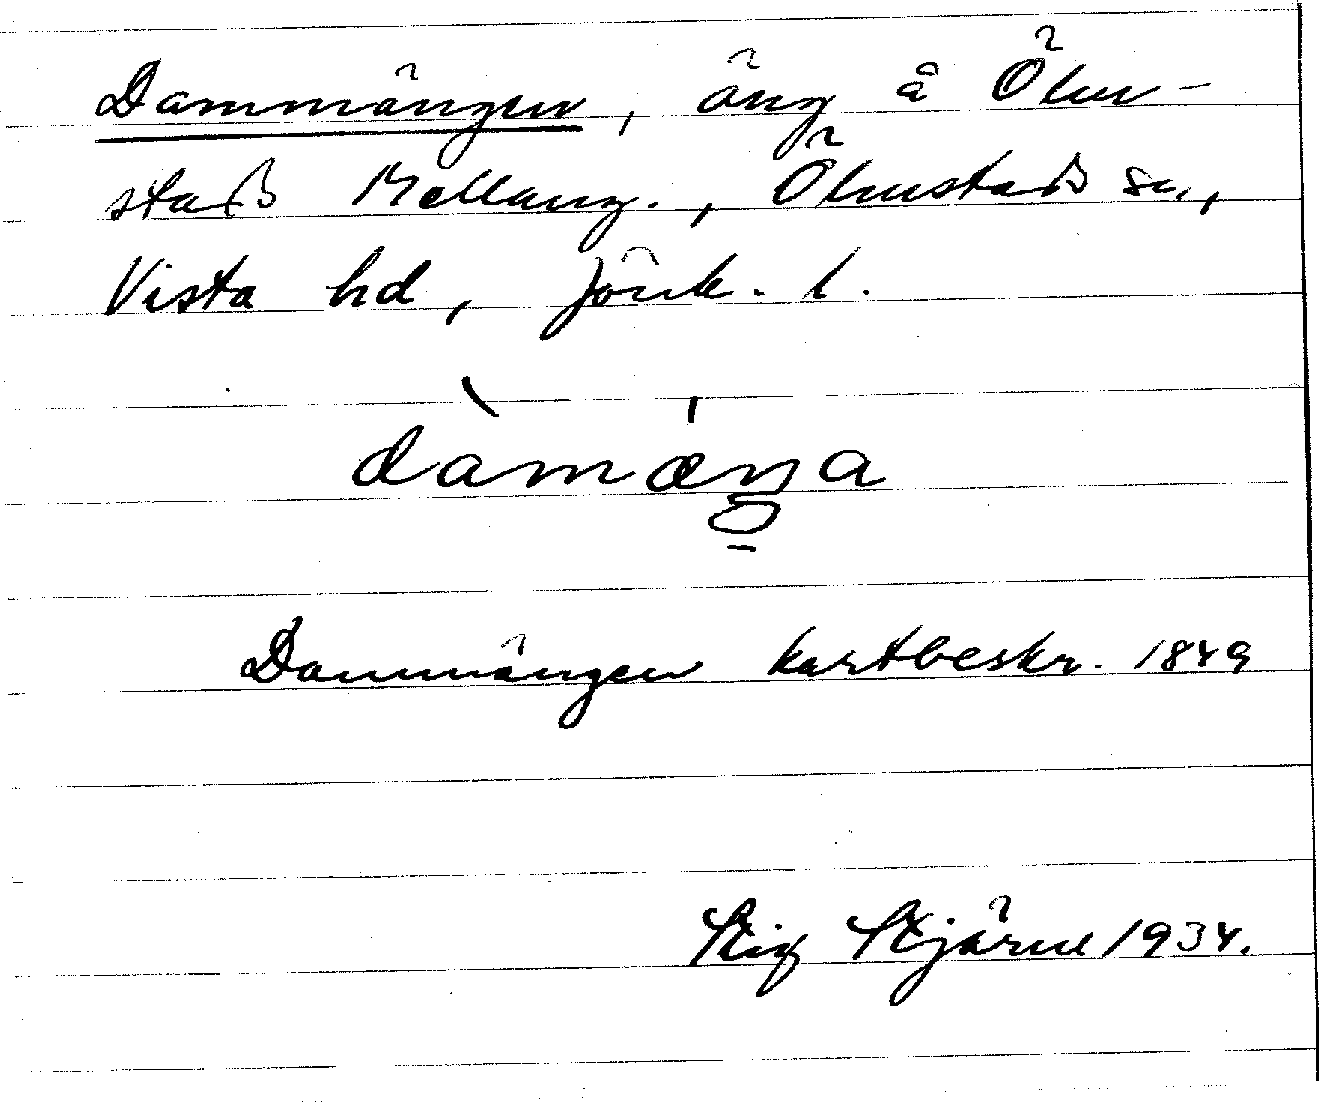 Dammängen, äng å Ölm-
stad Mellang., Ölmstad sn,
Vista hd, Jönk. l.
dàmæŋa
Dammängen kartbeskr. 1849
Stig Stjärne 1934.